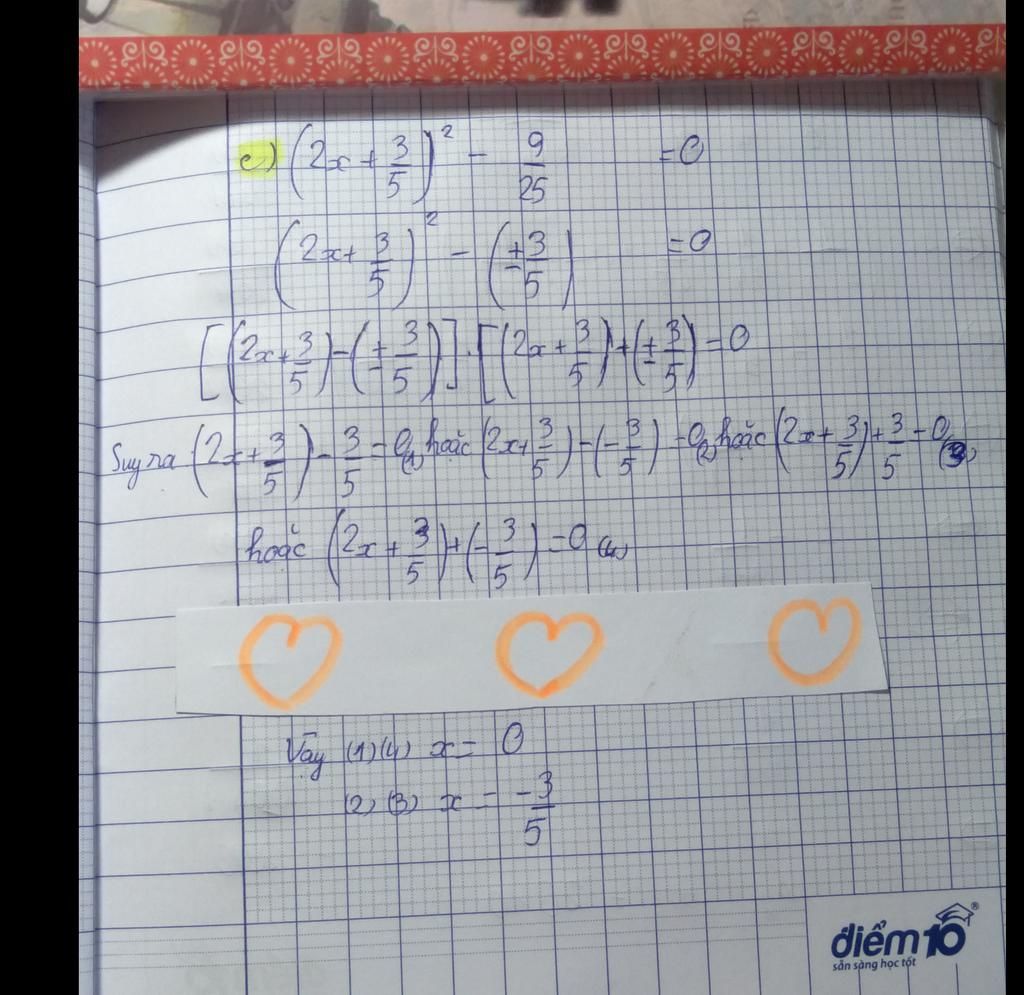 c) (2x + 3/5)² - 9/25 = 0
(2x + 3/5)² - (±3/5) = 0
[(2x + 3/5) - (± 3/5)] . [(2x + 3/5) + (± 3/5) = 0
Suy ra (2x + 3/5) - 3/5 = 0 (1) hoặc (2x + 3/5) - (-3/5) = 0 (2) hoặc (2x + 3/5) + 3/5 = 0 (3)
hoặc (2x + 3/5) + (-3/5) = 0 (4)
Vậy (1) (4) x = 0
(2) (3) x = -3/5
điểm10®
sẵn sàng học tốt